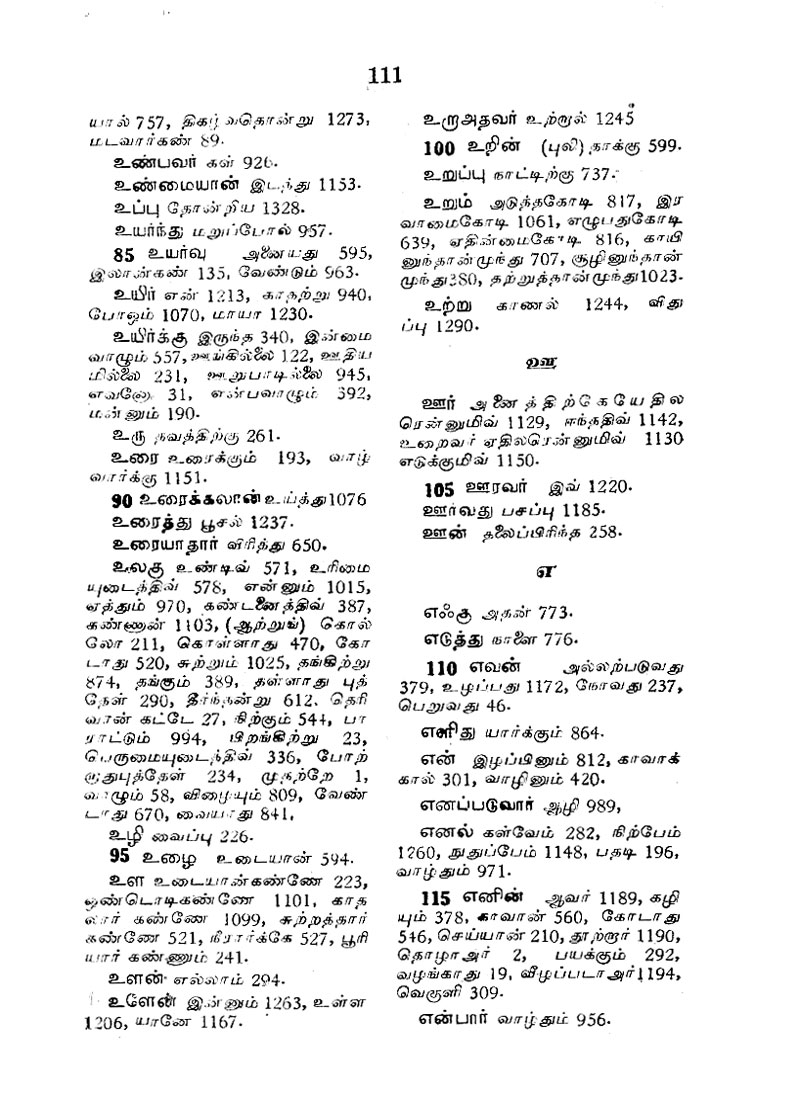 111
யால் 757, திகழ்வதொன்று 1273,
மடவார்கண் 89.
உண்பவர் கள் 926.
உண்மையான் இடந்து 1153.
உப்பு தோன்றிய 1328.
உயர்ந்து மறுப்போல் 957.
85 உயர்வு அனையது 595,
இலான்கண் 135, வேண்டும் 963.
உயிர் என் 1213, காதற்று 940,
போஒம் 1070, மாயா 1230.
உயிர்க்கு இருந்த 340, இன்மை
வாழும் 557, ஊங்கில்லை 122, ஊதிய
மில்லை 231, ஊறுபாடில்லை 945,
எவனோ 31, என்பவாழும் 392,
மன்னும் 190.
உரு நவத்திற்கு 261.
உரை உரைக்கும் 193, வாழ்
வார்க்கு 1151.
90 உரைக்கலான் உய்த்து 1076
உரைத்து பூசல் 1237.
உரையாதார் விரித்து 650.
உலகு உண்டிவ் 571, உரிமை
யுடைத்திவ் 578, என்னும் 1015,
ஏத்தும் 970, கண்டனைத்திவ் 387,
கண்ணுன் 1103, (ஆற்றுங்) கொல்
லோ 211, கொள்ளாது 470, கோ
டாது 520, சுற்றும் 1025, தங்கிற்று
874, தங்கும் 389, தள்ளாது புத்
தேள் 290, தீர்ந்தன்று 612. தெரி
வான் கட்டே 27, நிற்கும் 544, பா
ராட்டும் 994, பிறங்கிற்று 23,
பெருமையுடைத்திவ் 336, போற்
றாதுபுத்தேள் 234, முதற்றே 1,
வாழும் 58, விழையும் 809, வேண்
டாது 670, வையாது 841,
உழி வைப்பு 226.
95 உழை உடையான் 594.
உள உடையான்கண்ணே 223,
ஒண்டொடிகண்ணே 1101, காத
லார் கண்ணே 1099, சுற்றத்தார்
கண்ணே 521, நீரார்க்கே 527, பூரி
யார் கண்ணும் 241.
உளன் எல்லாம் 294.
உளேன் இன்னும் 1263, உள்ள
1206, யானே 1167.
உறாஅதவர் உற்றால் 1245
100 உறின் (புலி) தாக்கு 599.
உறுப்பு நாட்டிற்கு 737.
உறும் அடுத்தகோடி 817, இர
வாமைகோடி 1061, எழுபதுகோடி
639, ஏதின்மைகோடி 816, காயி
னுந்தான்முந்து 707, சூழினுந்தான்
முந்து 380, தற்றுத்தான்முந்து 1023.
உற்று காணல் 1244, விது
ப்பு 1290.
ஊ
ஊர் அனைத்திற்கேயேதில
ரென்னுமிவ் 1129, ஈந்ததிவ் 1142,
உறைவர் ஏதிலரென்னுமிவ் 1130
எடுக்குமிவ் 1150.
105 ஊரவர் இவ் 1220.
ஊர்வது பசப்பு 1185.
ஊன் தலைப்பிரிந்த 258.
எ
எஃகு அதன் 773.
எடுத்து நாளை 776.
110 எவன் அல்லற்படுவது
379, உழப்பது 1172, நோவது 237,
பெறுவது 46.
எளிது யார்க்கும் 864.
என் இழப்பினும் 812, காவாக்
கால் 301, வாழினும் 420.
எனப்படுவார் ஆழி 989,
எனல் கள்வேம் 282, நிற்பேம்
1260, நுதுப்பேம் 1148, பதடி 196,
வாழ்தும் 971.
115 எனின் ஆவர் 1189, கழி
யும் 378, காவான் 560, கோடாது
546, செய்யான் 210, தூற்றார் 1190,
தொழாஅர் 2, பயக்கும் 292,
வழங்காது 19, வீழப்படாஅர் 1194,
வெகுளி 309.
என்பார் வாழ்தும் 956.